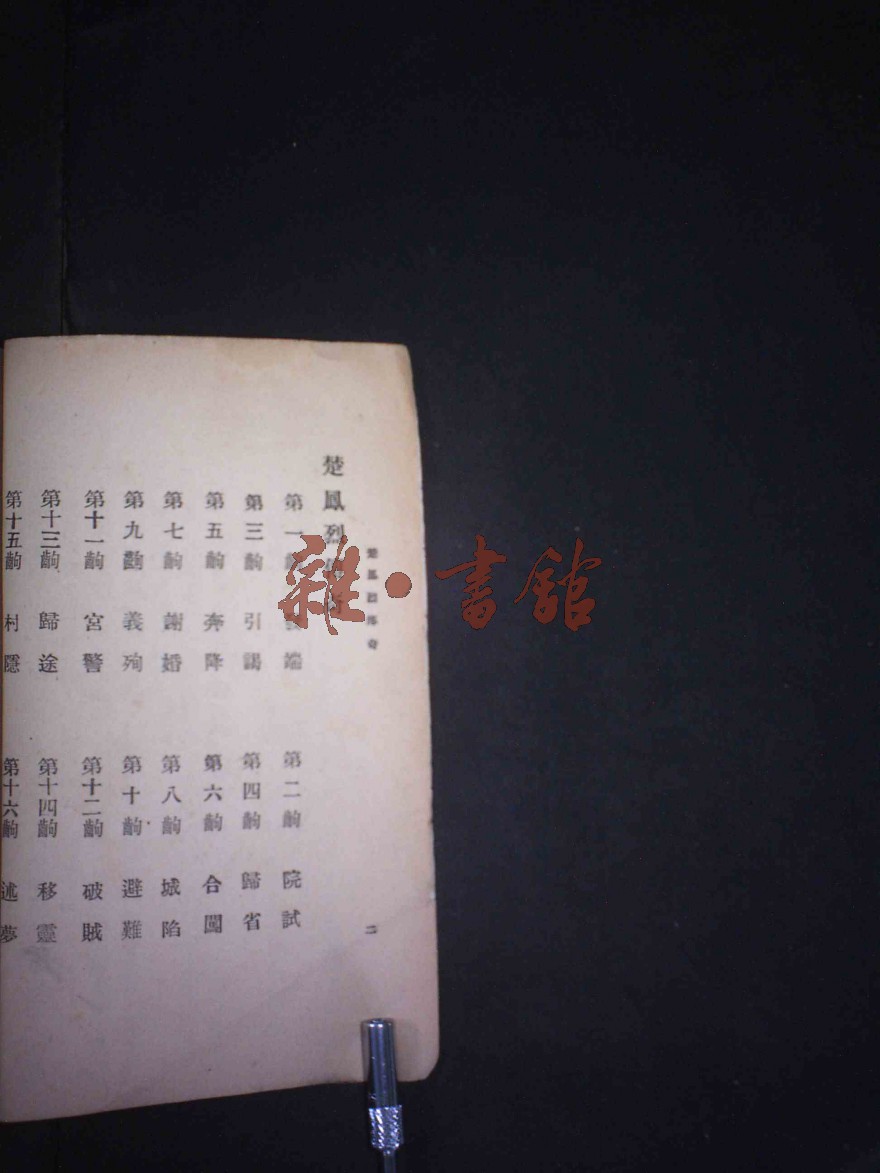 楚鳳烈傳奇
二
楚鳳烈傳奇
第一齣 端
第二齣 院試
第三齣 引謁
第四齣 歸省
第五齣 奔降
第六齣 合
第七齣 謝婚
第八齣 城陷
第九齣 義殉
第十齣 避難
第十一齣 宮警
第十二齣 破賊
第十三齣 歸途
第十四齣 移靈
第十五齣 村隱
第十六齣 述夢
雜·書館